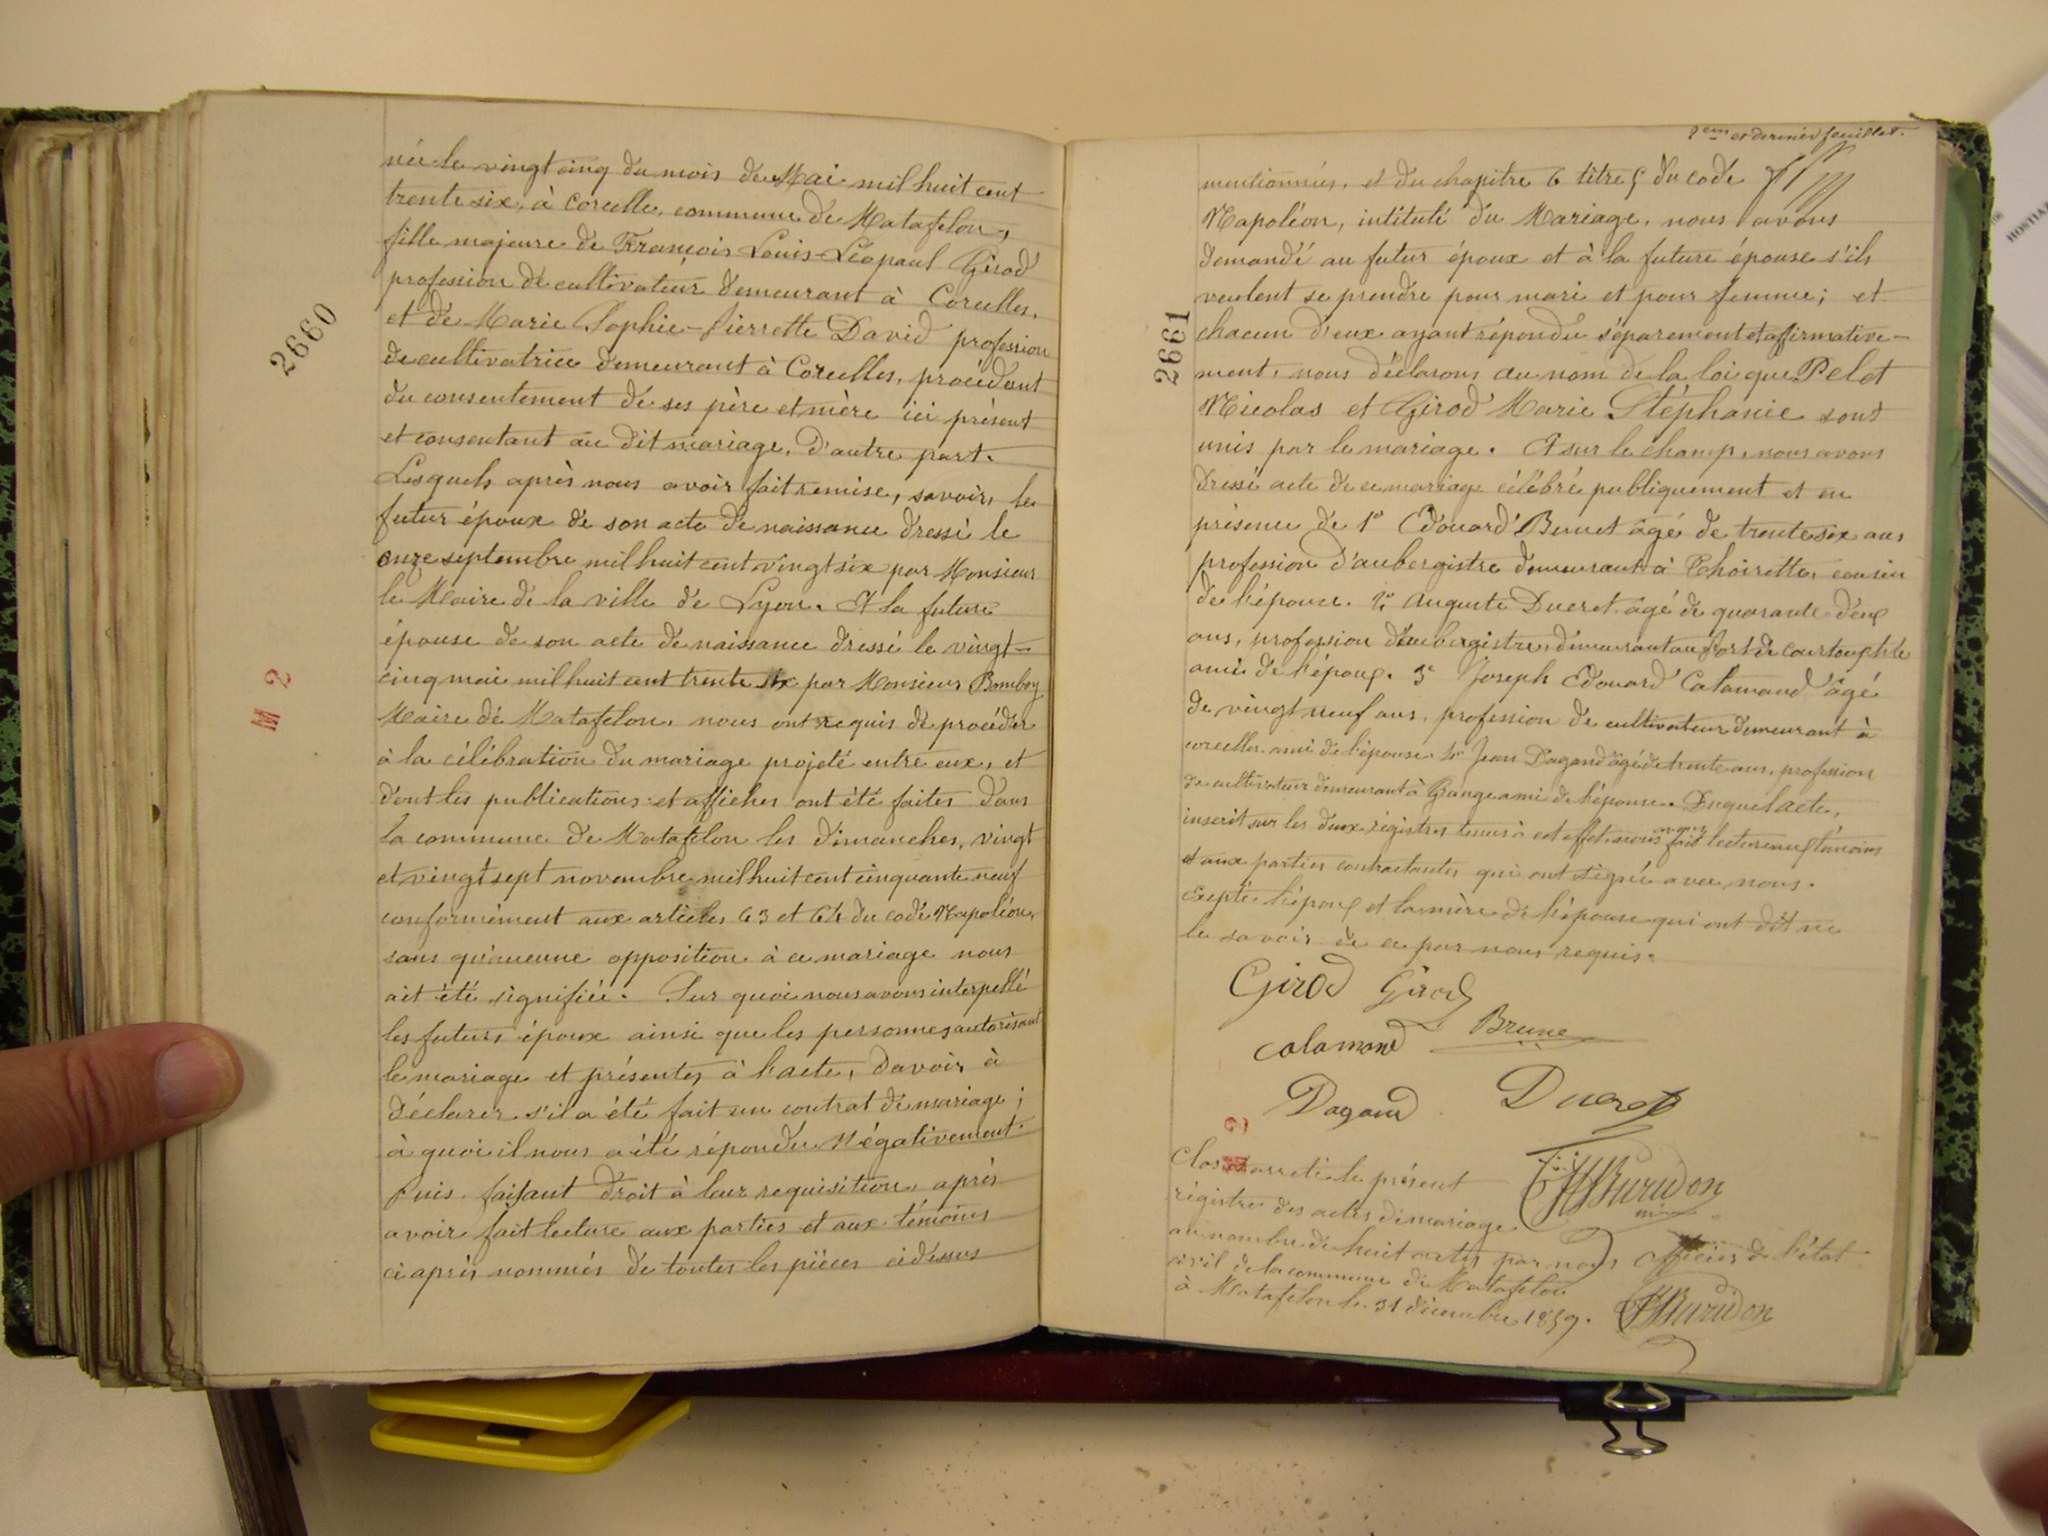 2660
M 2
née le vingt cinq du mois de Mai mil huit cent
trente six, à Corcelle, commune de Matafelon,
fille majeure de François Louis-Léopaul Girod
profession de cultivateur demeurant à Corcelles,
et de Marie Sophie-Pierrette David profession
de cultivatrice demeurant à Corcelles, procédant
du consentement de ses père et mère ici présent
et consentant au dit mariage, D'autre part.
Lesquels après nous avoir fait remise, savoir, le
futur époux de son acte de naissance dressé le
onze septembre mil huit cent vingt six par Monsieur
le Maire de la ville de Lyon. Et la future
épouse de son acte de naissance dressé le vingt-
cinq mai mil huit cent trente six par Monsieur Bomboy
Maire de Matafelon, nous ont requis de procéder
à la célébration du mariage projeté entre eux, et
dont les publications et affiches ont été faites dans
la commune de Matafelon les dimanches, vingt
et vingt sept novembre mil huit cent cinquante neuf
conformément aux articles 63 et 64 du code Napoléon,
sans qu'aucune opposition à ce mariage nous
ait été signifiée. Sur quoi nous avons interpellé
les futurs époux ainsi que les personnes autorisant
le mariage et présentes à l'acte, d'avoir à
déclarer s'il a été fait un contrat de mariage;
à quoi il nous a été répondu Négativement.
Puis faisant droit à leur requisition, après
avoir fait lecture aux parties et aux témoins
ci après nommés de toutes les pièces ci dessus
et dernier feuillet.
2661
mentionnées, et du chapitre 6 titre 5 du code
Napoléon, intitulé du Mariage, nous avons
demandé au futur époux et à la future épouse s'ils
veulent se prendre pour mari et pour femme; et
chacun d'eux ayant répondu séparement et affirmative-
ment, nous déclarons au nom de la loi que Pelot
Nicolas et Girod Marie Stéphanie sont
unis par le mariage. Et sur le champ, nous avons
dressé acte de ce mariage célébré publiquement et en
présence de 1° Edouard Brunet âgé de trente six ans
profession d'aubergistre demeurant à Thoirette, cousin
de l'épouse. 2° Auguste Ducret âgé de quarante deux
ans, profession d'aubergistre, demeurant au Port de
ami de l'époux. 3° Joseph Edouard Calamand âgé
de vingt neuf ans, profession de cultivateur demeurant à
corcelles ami de l'épouse 4° Jean Dagand âgé de trente ans, profession
de cultivateur demeurant à Grange ami de l'épouse. Duquel acte,
inscrit sur les deux régistres tenus à cet effet, nous avons fait lecture aux témoins
et aux parties contractantes, qui ont signé avec nous.
Excepté l'époux et la mère de l'épouse qui ont dit ne
le savoir de ce par nous requis.
Girod Girod
Calamand Brune
Dagand Ducret
M 2
Clos et arreté le présent Buridon
régistre des actes de mariage
au nombre de huit actes par nous officier de l'état
civil de la commune de Matafelon
à Matafelon le 31 décembre 1859. Buridon